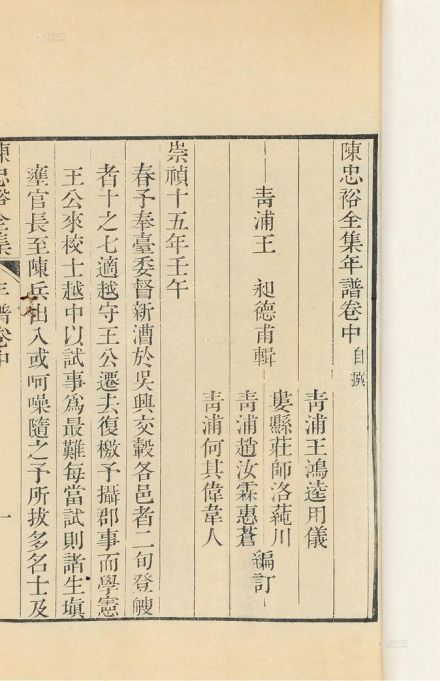 陳忠裕全集年譜卷中 自撰
青浦王 昶德甫輯
青浦王鴻逵用儀
婁縣莊師洛蒓川
青浦趙汝霖惠蒼
青浦何其偉韋人
編訂
崇禎十五年壬午
春予奉臺委督新漕於吳興交穀各邑者二旬登艘
者十之七適越守王公遷去復檄予攝郡事而學憲
王公來校士越中以試事為最難每當試則諸生塡
壅官長至陳兵出入或呵噪隨之予所拔多名士及
陳忠裕全集
年譜卷中
一